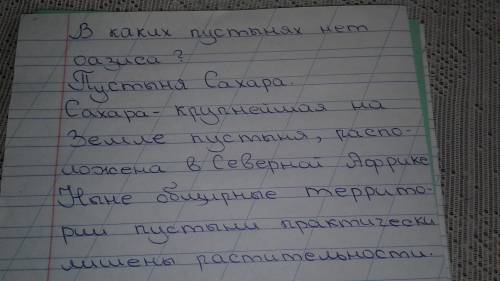 В каких пустынях нет
оазиса?
Пустыня Сахара.
Сахара- крупнейшая на
Земле пустыня, распо-
ложена в Северной Африке
Ныне обширные террито-
рии пустыни практически
лишены растительности.